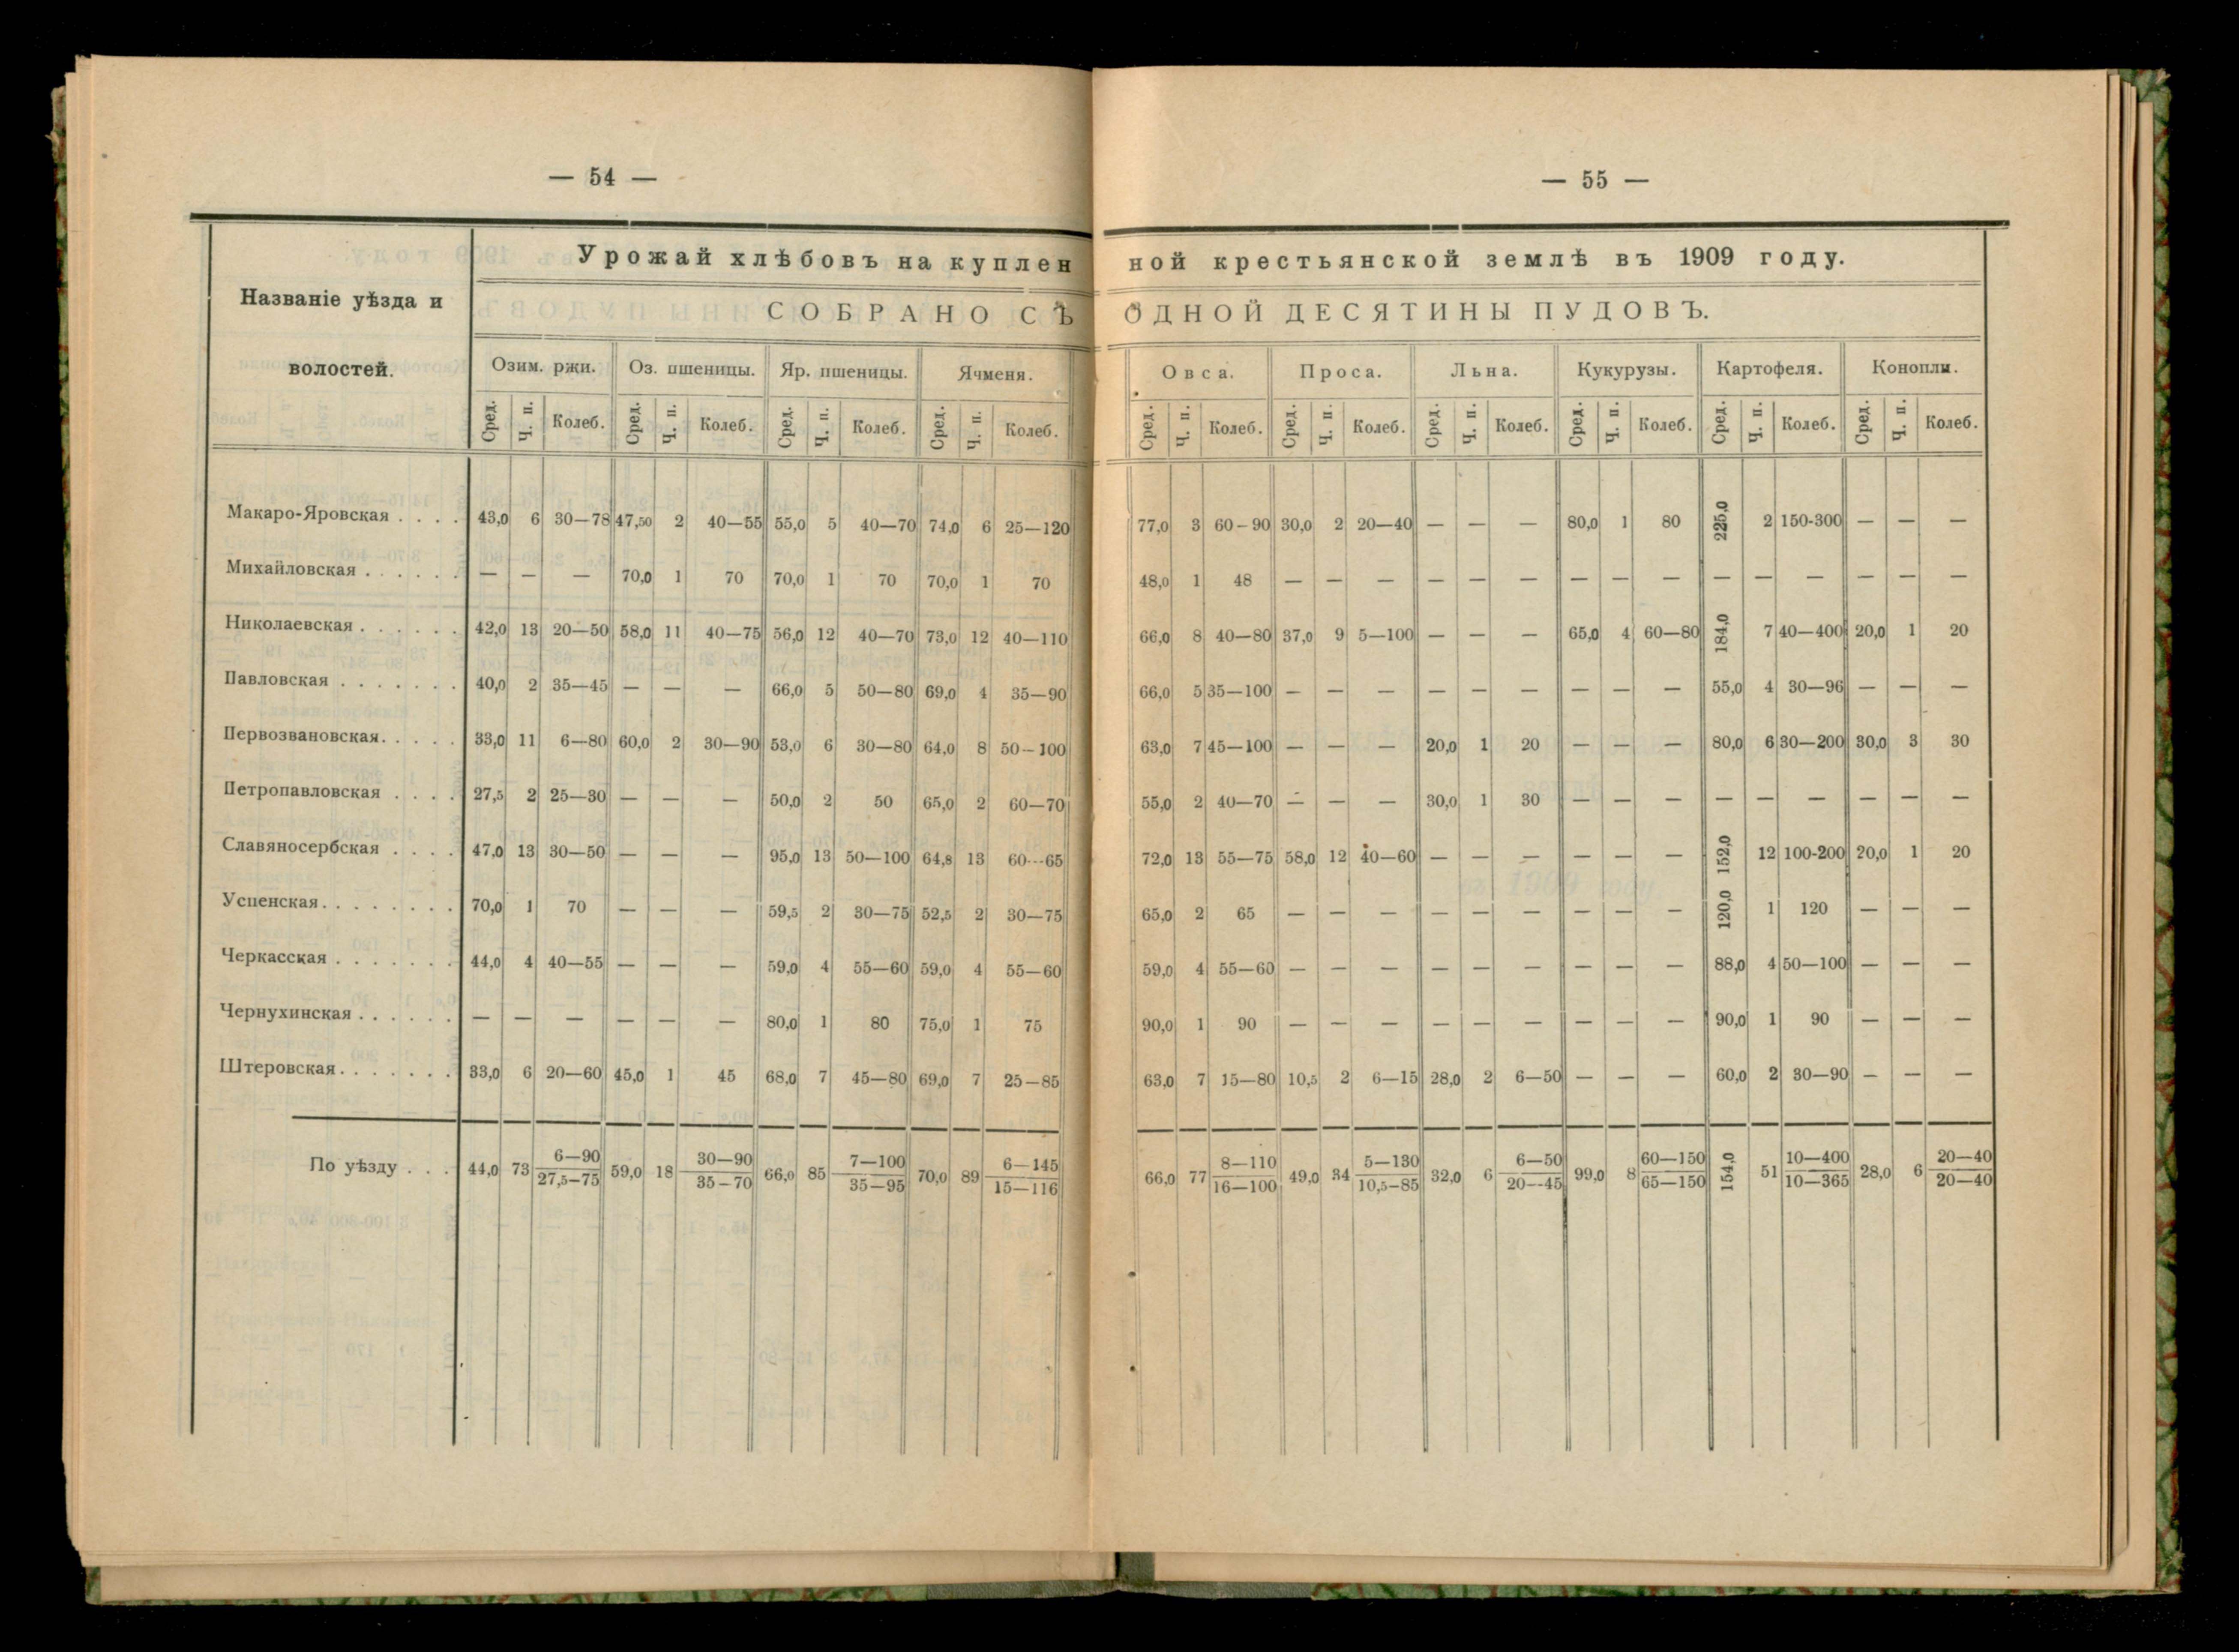 — 54 —
Урожай хлѣбовъ на куплен
Названіе уѣзда и
волостей.
СОБРАНО СЪ
Озим. ржи. Оз. пшеницы. Яр. пшеницы. Ячменя.
Сред. Ч. п. Колеб. Сред. Ч. п. Колеб. Сред. Ч. п. Колеб. Сред. Ч. п. Колеб.
Макаро-Яровская . . . . 43,0 6 30—78 47,50 2 40—55 55,0 5 40—70 74,0 6 25—120
Михайловская . . . . . . — — — 70,0 1 70 70,0 1 70 70,0 1 70
Николаевская . . . . . . 42,0 13 20—50 58,0 11 40—75 56,0 12 40—70 73,0 12 40—110
Павловская . . . . . . . 40,0 2 35—45 — — — 66,0 5 50—80 69,0 4 35—90
Первозвановская. . . . . 33,0 11 6—80 60,0 2 30—90 53,0 6 30—80 64,0 8 50—100
Петропавловская . . . . 27,5 2 25—30 — — — 50,0 2 50 65,0 2 60—70
Славяносербская . . . . 47,0 13 30—50 — — — 95,0 13 50—100 64,8 13 60—65
Успенская. . . . . . . . 70,0 1 70 — — — 59,5 2 30—75 52,5 2 30—75
Черкасская . . . . . . . 44,0 4 40—55 — — — 59,0 4 55—60 59,0 4 55—60
Чернухинская . . . . . . — — — — — — 80,0 1 80 75,0 1 75
Штеровская. . . . . . . 33,0 6 20—60 45,0 1 45 68,0 7 45—80 69,0 7 25—85
По уѣзду . . . 44,0 73 6—90 27,5—75 59,0 18 30—90 35—70 66,0 85 7—100 35—95 70,0 89 6—145 15—116
— 55 —
ной крестьянской землѣ въ 1909 году.
ОДНОЙ ДЕСЯТИНЫ ПУДОВЪ.
Овса. Проса. Льна. Кукурузы. Картофеля. Конопли.
Сред. Ч. п. Колеб. Сред. Ч. п. Колеб. Сред. Ч. п. Колеб. Сред. Ч. п. Колеб. Сред. Ч. п. Колеб. Сред. Ч. п. Колеб.
77,0 3 60—90 30,0 2 20—40 — — — 80,0 1 80 225,0 2 150-300 — — —
48,0 1 48 — — — — — — — — — — — — — — —
66,0 8 40—80 37,0 9 5—100 — — — 65,0 4 60—80 184,0 7 40—400 20,0 1 20
66,0 5 35—100 — — — — — — — — — 55,0 4 30—96 — — —
63,0 7 45—100 — — — 20,0 1 20 — — — 80,0 6 30—200 30,0 3 30
55,0 2 40—70 — — — 30,0 1 30 — — — — — — — — —
72,0 13 55—75 58,0 12 40—60 — — — — — — 152,0 12 100-200 20,0 1 20
65,0 2 65 — — — — — — — — — 120,0 1 120 — — —
59,0 4 55—60 — — — — — — — — — 88,0 4 50—100 — — —
90,0 1 90 — — — — — — — — — 90,0 1 90 — — —
63,0 7 15—80 10,5 2 6—15 28,0 2 6—50 — — — 60,0 2 30—90 — — —
66,0 77 8—110 16—100 49,0 34 5—130 10,5—85 32,0 6 6—50 20—45 99,0 8 60—150 65—150 154,0 51 10—400 10—365 28,0 6 20—40 20—40